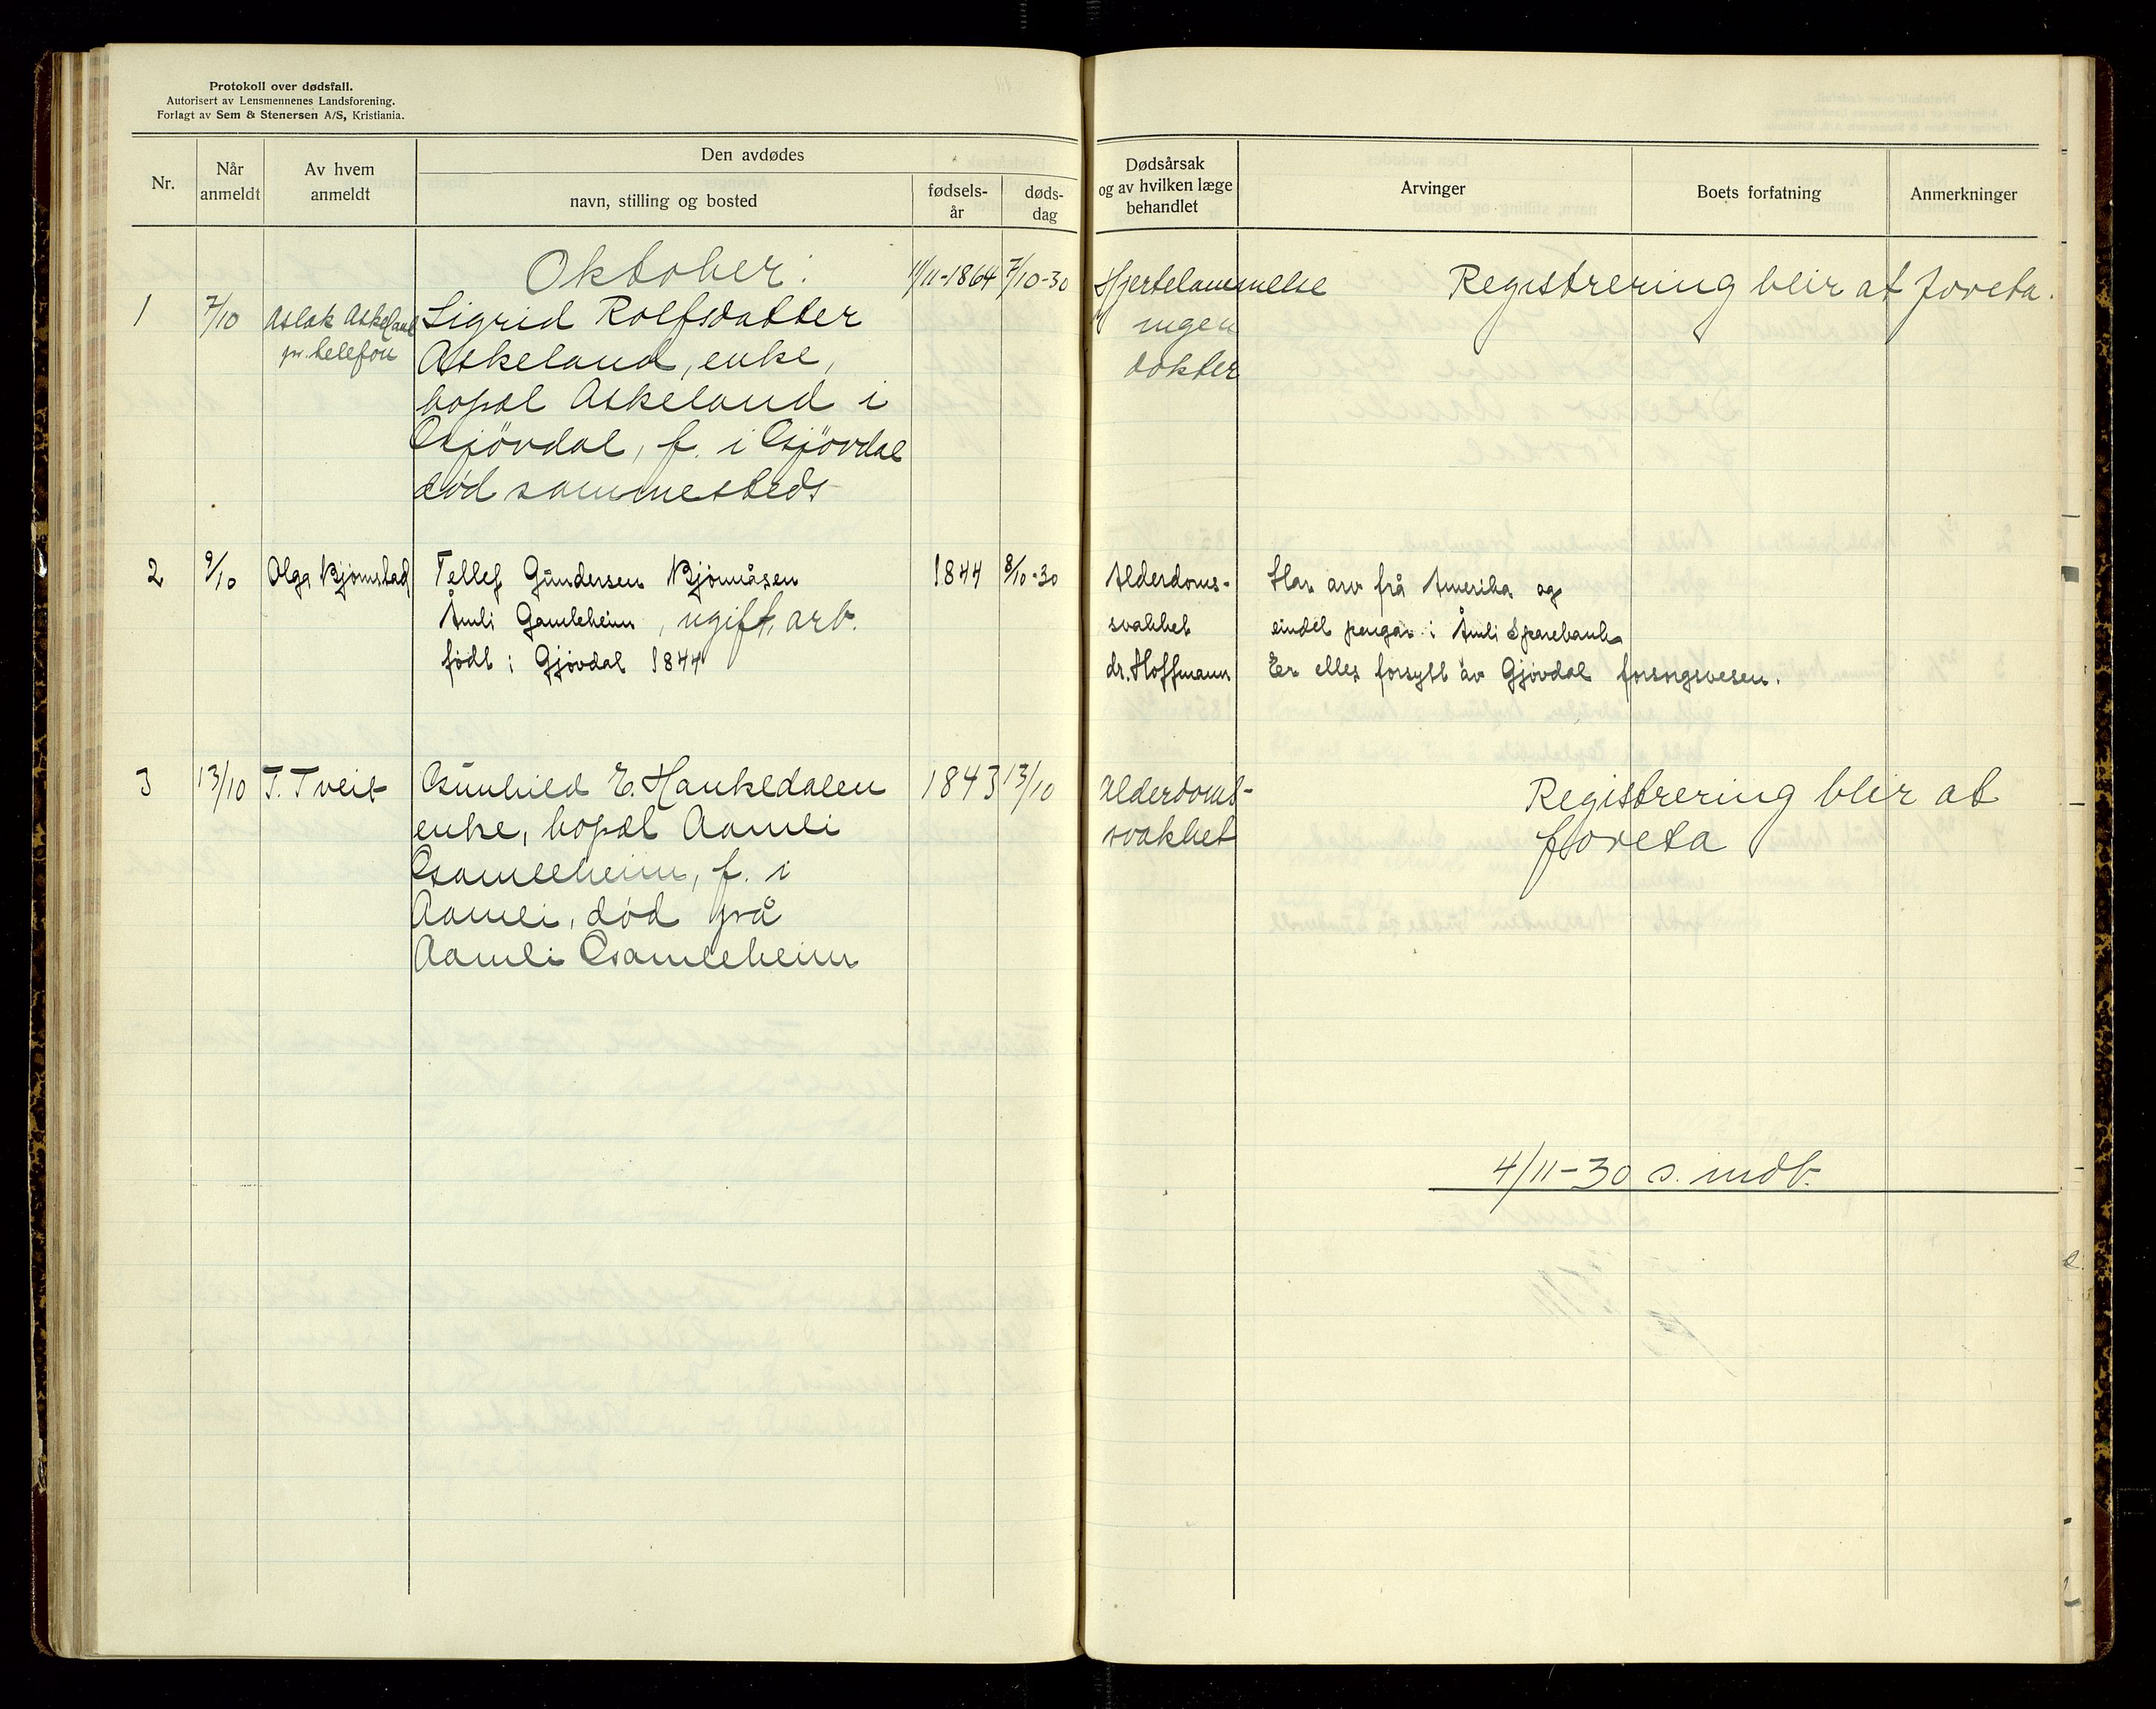 Protokoll over dødsfall.
Autorisert av Lensmennenes Landsforening.
Forlagt av Sem & Stenersen A/S, Kristiania.
Nr.
Når anmeldt
Av hvem anmeldt
Den avdødes
navn, stilling og bosted
fødsels-år
døds-dag
Dødsårsak og av hvilken læge behandlet
Arvinger
Boets forfatning
Anmerkninger
Oktober:
1 7/10 Aslak Askeland pr. telefon
Sigrid Rolfsdatter
Askeland, enke,
bopæl Askeland i
Gjövdal, f. i Gjövdal
död sammesteds
11/11-1864 7/10-30
Hjertelammelse
ingen
dokter
Registrering blir at foreta.
2 9/10 Olga Bjørnstad
Tellef Gundersen Bjørnåsen
Åmli Gamleheim, ugift, arb.
født i Gjøvdal 1844
1844 8/10-30
Alderdoms-
svakhet
dr. Hoffmann
Har arv frå Amerika og
eindel pengar i Åmli Sparebank
Er elles forsytt av Gjøvdal forsorgsvesen.
3 13/10 T. Tveit
Gunhild E. Hankedalen
enke, bopæl Aamli
Gamleheim, f. i
Aamli, död på
Aamli Gamleheim
1843 13/10
Alderdoms-
svakhet
Registrering blir at
foreta
4/11-30 s. indb.